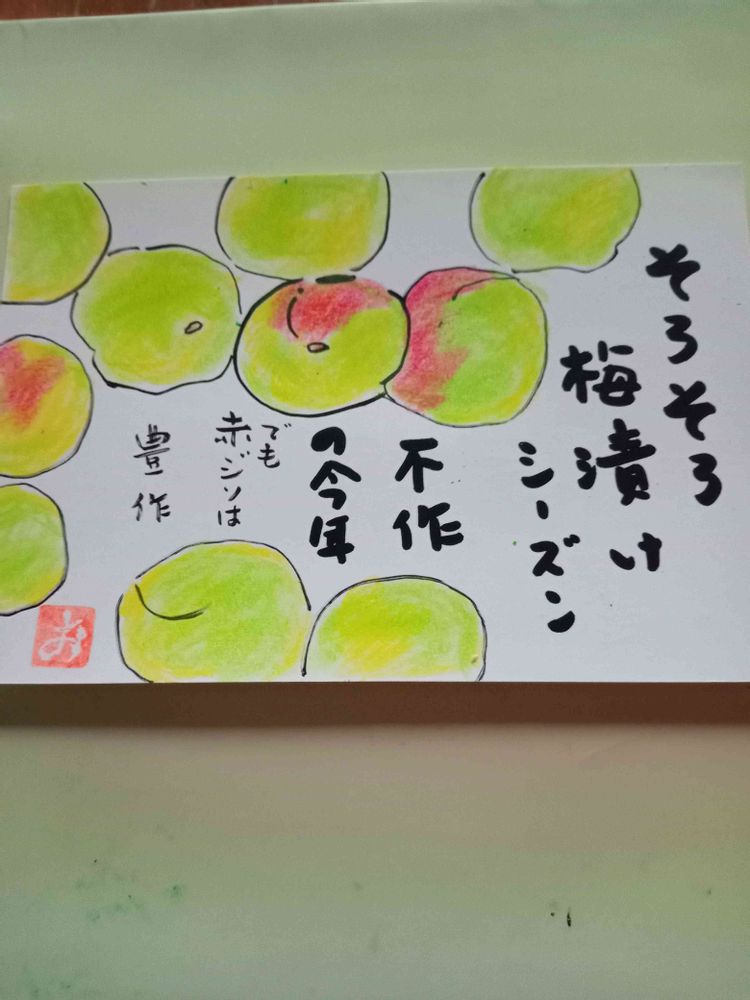 そろそろ
梅漬け
シーズン
不作
の今年
でも
赤ジソは
豊作
お